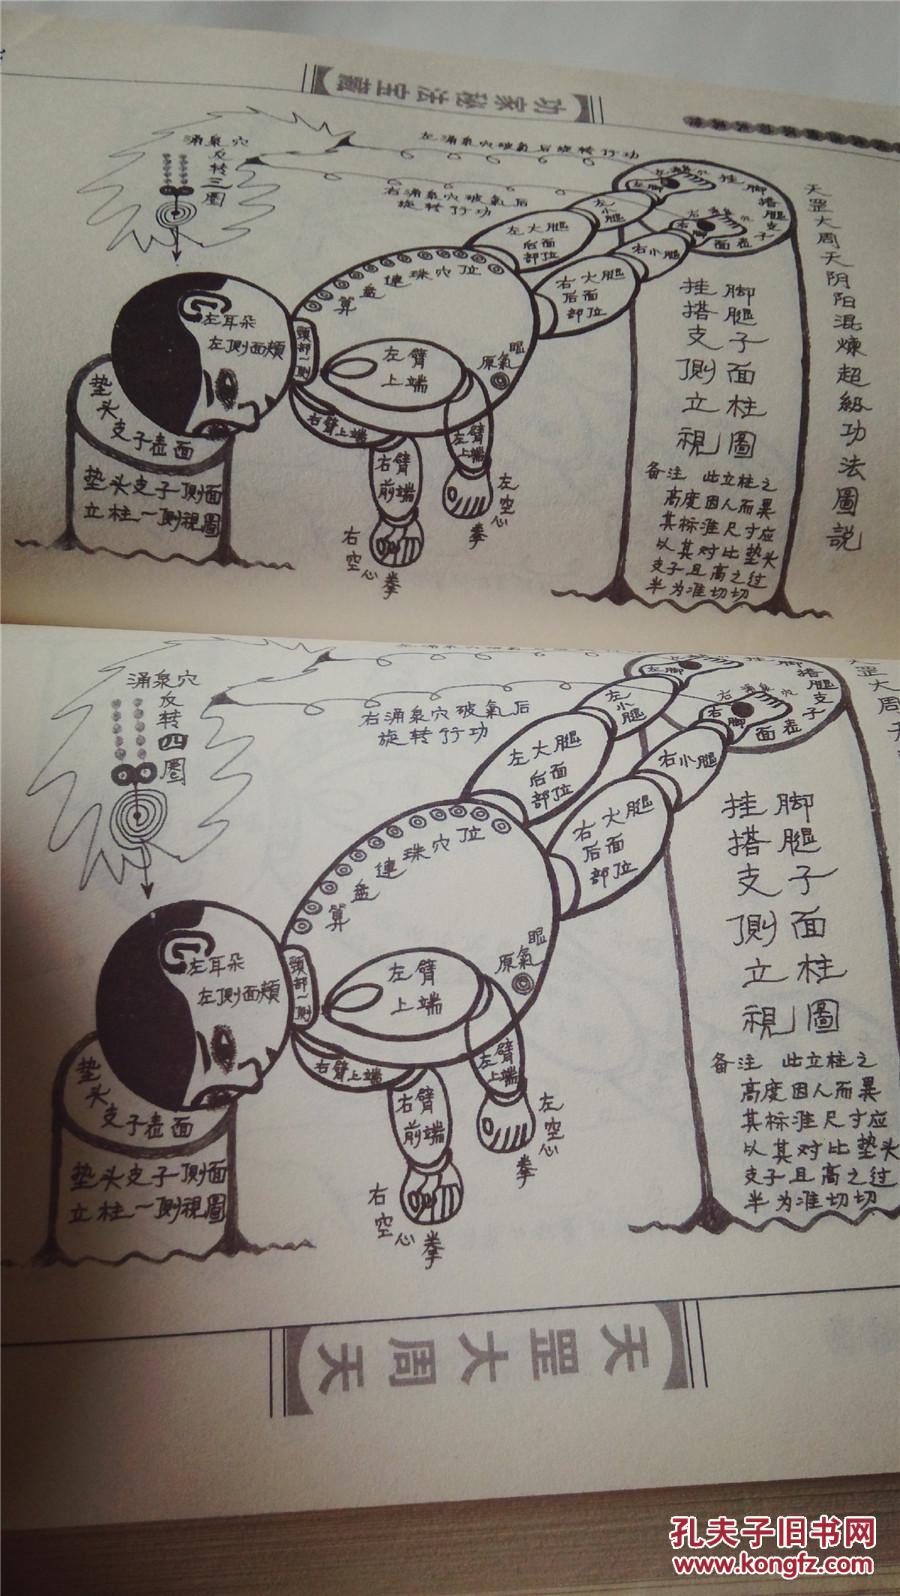 功家秘法宝藏
左涌泉穴破氣后旋转行功
涌泉穴
反转三圈
右涌泉穴破氣后
旋转行功
挂脚搭腿支子
面壵
左脚
右脚
左小腿
右小腿
左大腿
后面
部位
右大腿
后面
部位
算盘連珠穴位
原氣眼
左耳朵
左側面頰
頸部一側
左臂
上端
右臂上端
左臂
上端
右臂
前端
左空心拳
右空心拳
垫头
支子壵面
垫头支子側面
立柱一側視圖
挂脚
搭腿
支子
側面
立柱
視圖
备注 此立柱之
高度因人而異
其标准尺寸应
以其对比垫头
支子且高之过
半为准切切
天罡大周天阴阳混煉超級功法圖説
涌泉穴
反转四圈
右涌泉穴破氣后
旋转行功
挂脚搭腿支子
面壵
左脚
右脚
左小腿
右小腿
左大腿
后面
部位
右大腿
后面
部位
算盘連珠穴位
原氣眼
左耳朵
左側面頰
頸部一側
左臂
上端
右臂上端
左臂
上端
右臂
前端
左空心拳
右空心拳
垫头
支子壵面
垫头支子側面
立柱一側視圖
挂脚
搭腿
支子
側面
立柱
視圖
备注 此立柱之
高度因人而異
其标准尺寸应
以其对比垫头
支子且高之过
半为准切切
天罡大周天
天罡大周天
孔夫子旧书网
www.kongfz.com